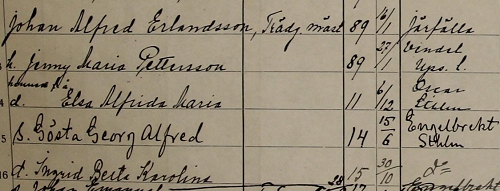 Johan Alfred Erlandsson, Trädg. mäst. 89 16/1 Järfälla
h. Jenny Maria Pettersson 89 27/1 Vendel Ups. l.
4 d. Elsa Alfrida Maria 11 6/12 Oscar Sthlm
5 s. Gösta Georg Alfred 14 15/6 Engelbrekt Sthlm
16 d. Ingrid Berta Karolina 15 30/10 do